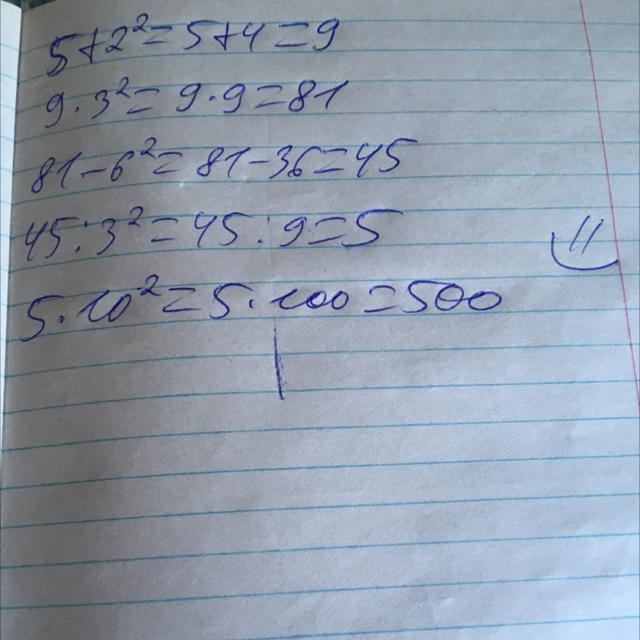 5+2²=5+4=9
9·3²=9·9=81
81-6²=81-36=45
45:3²=45:9=5
5·10²=5·100=500